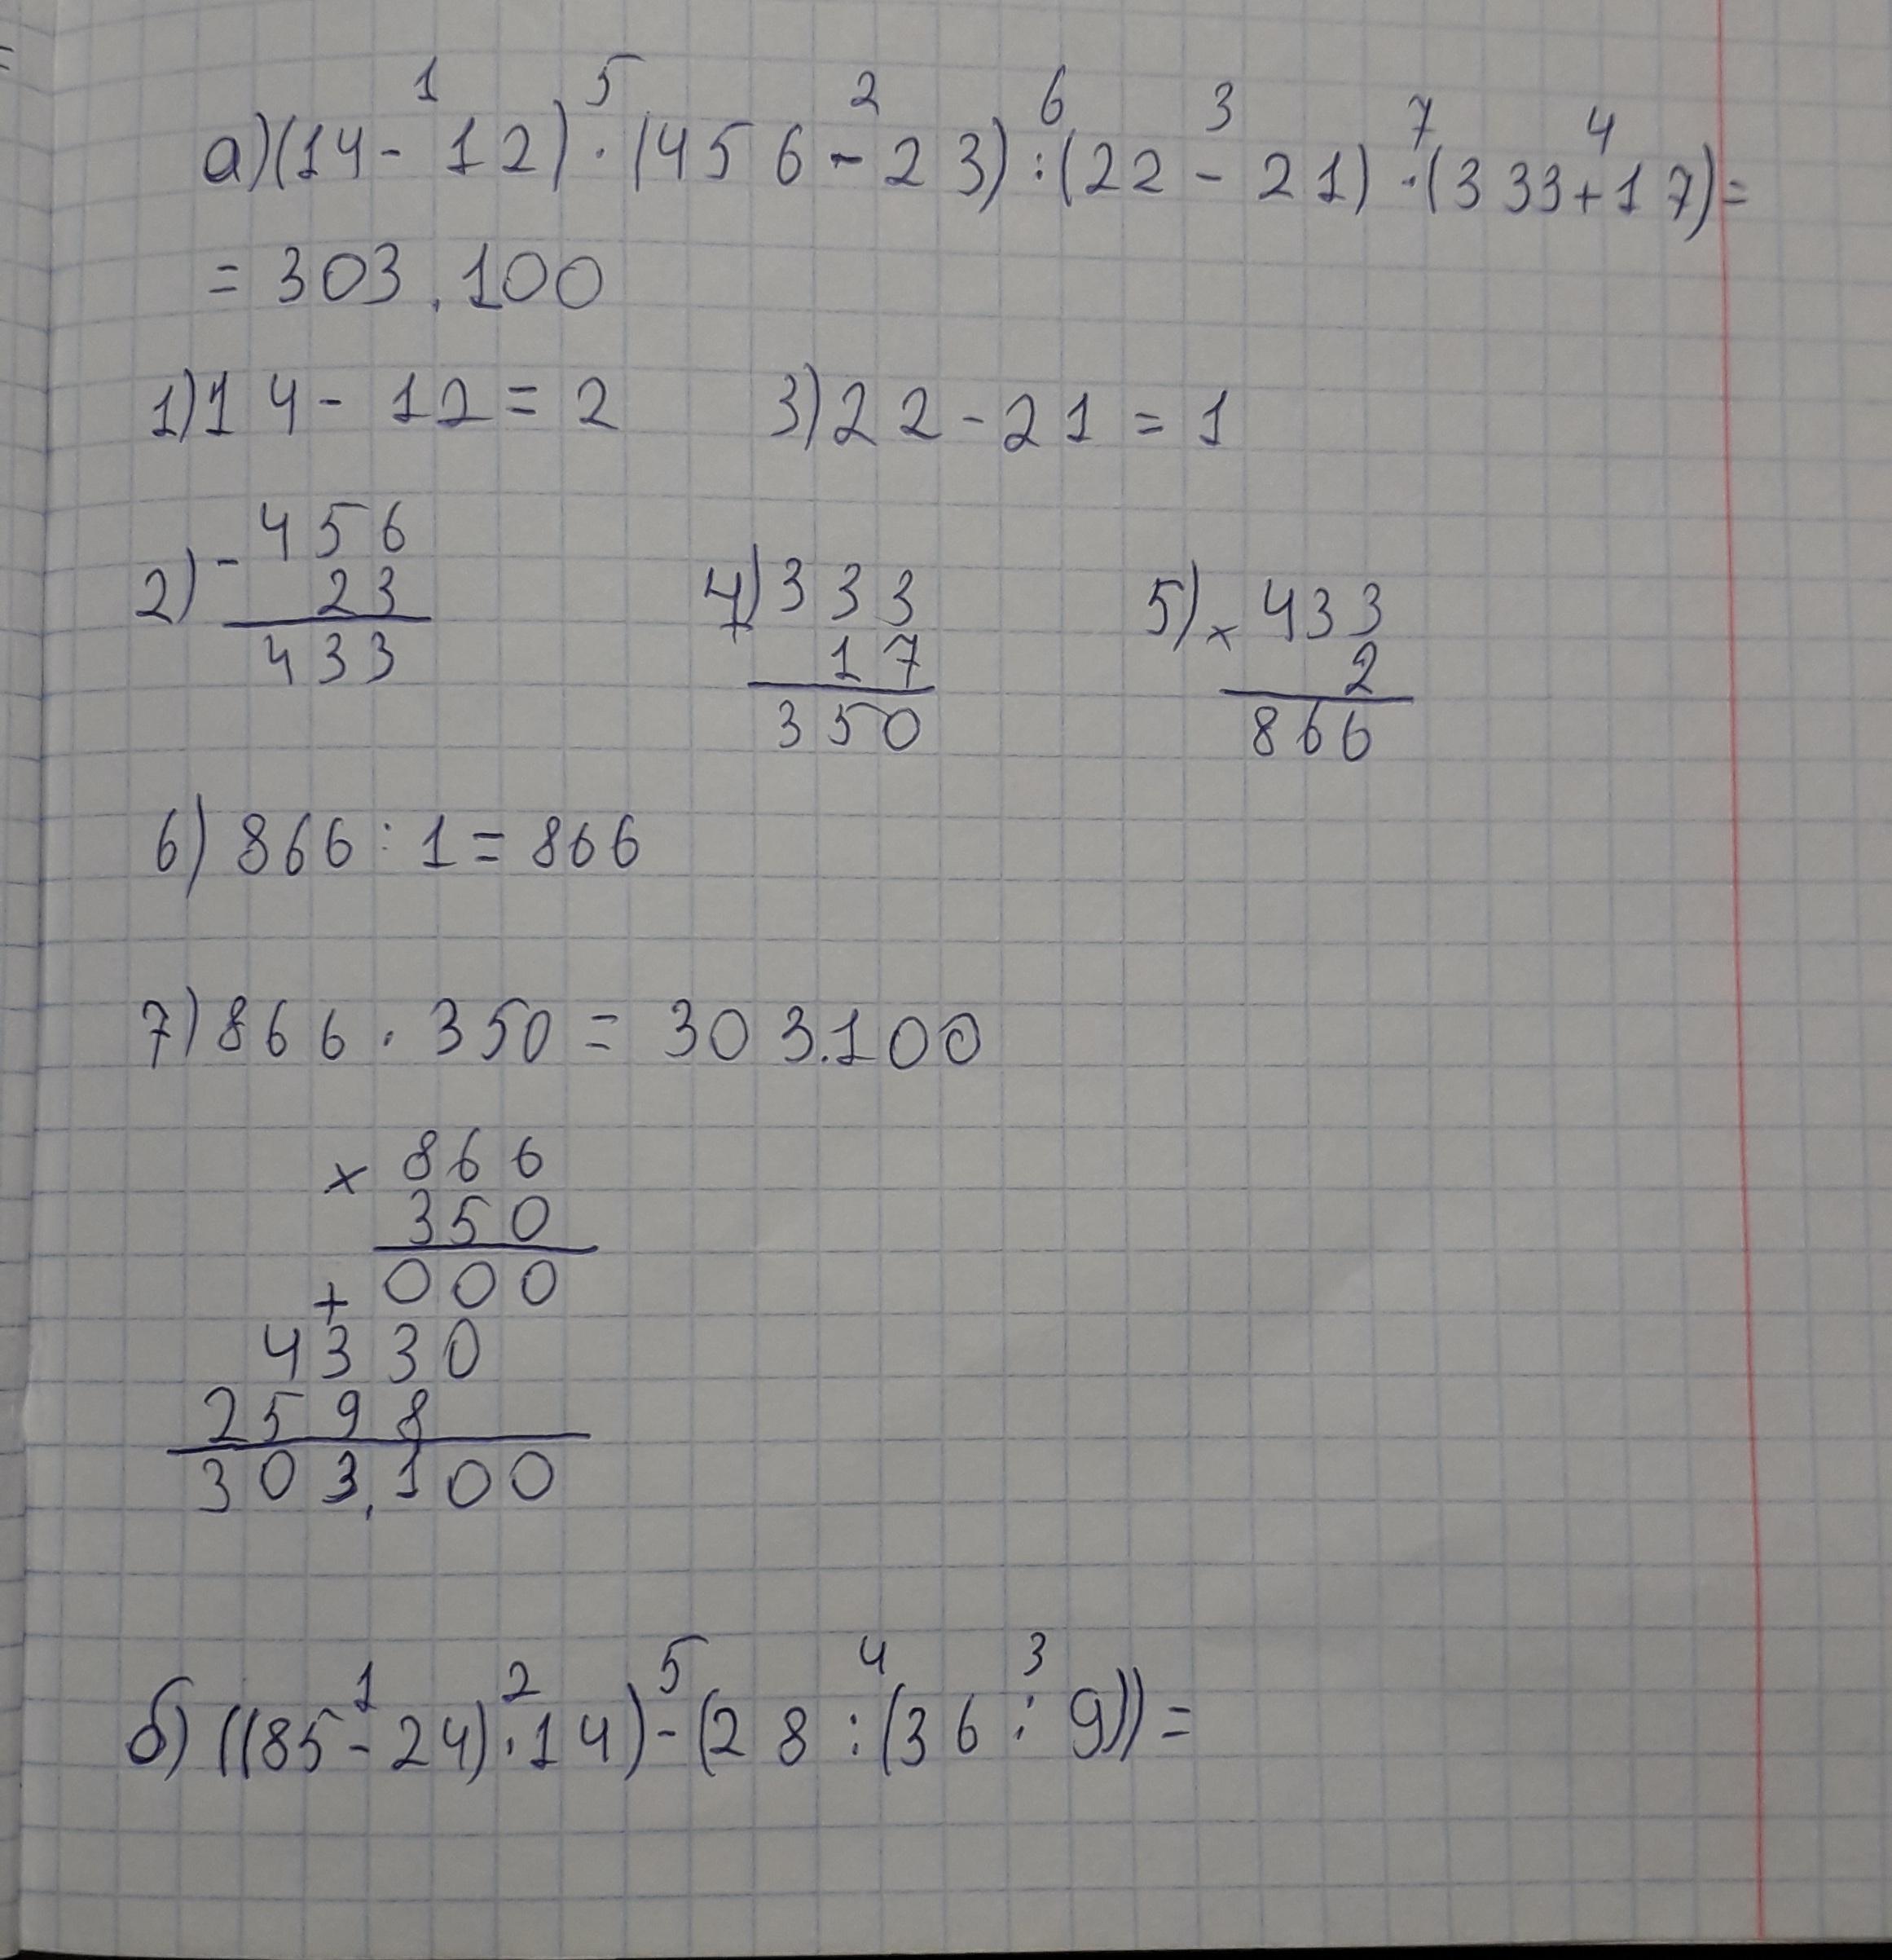 1 5 2 6 3 7 4
а) (14 - 12) · (456 - 23) : (22 - 21) · (333 + 17) =
= 303.100
1) 14 - 12 = 2 3) 22 - 21 = 1
2) - 456
23
433
4) + 333
17
350
5) × 433
2
866
6) 866 : 1 = 866
7) 866 · 350 = 303.100
× 866
350
+ 000
4330
2598
303.100
1 2 5 4 3
б) ((85 - 24) · 14) - (28 : (36 : 9)) =